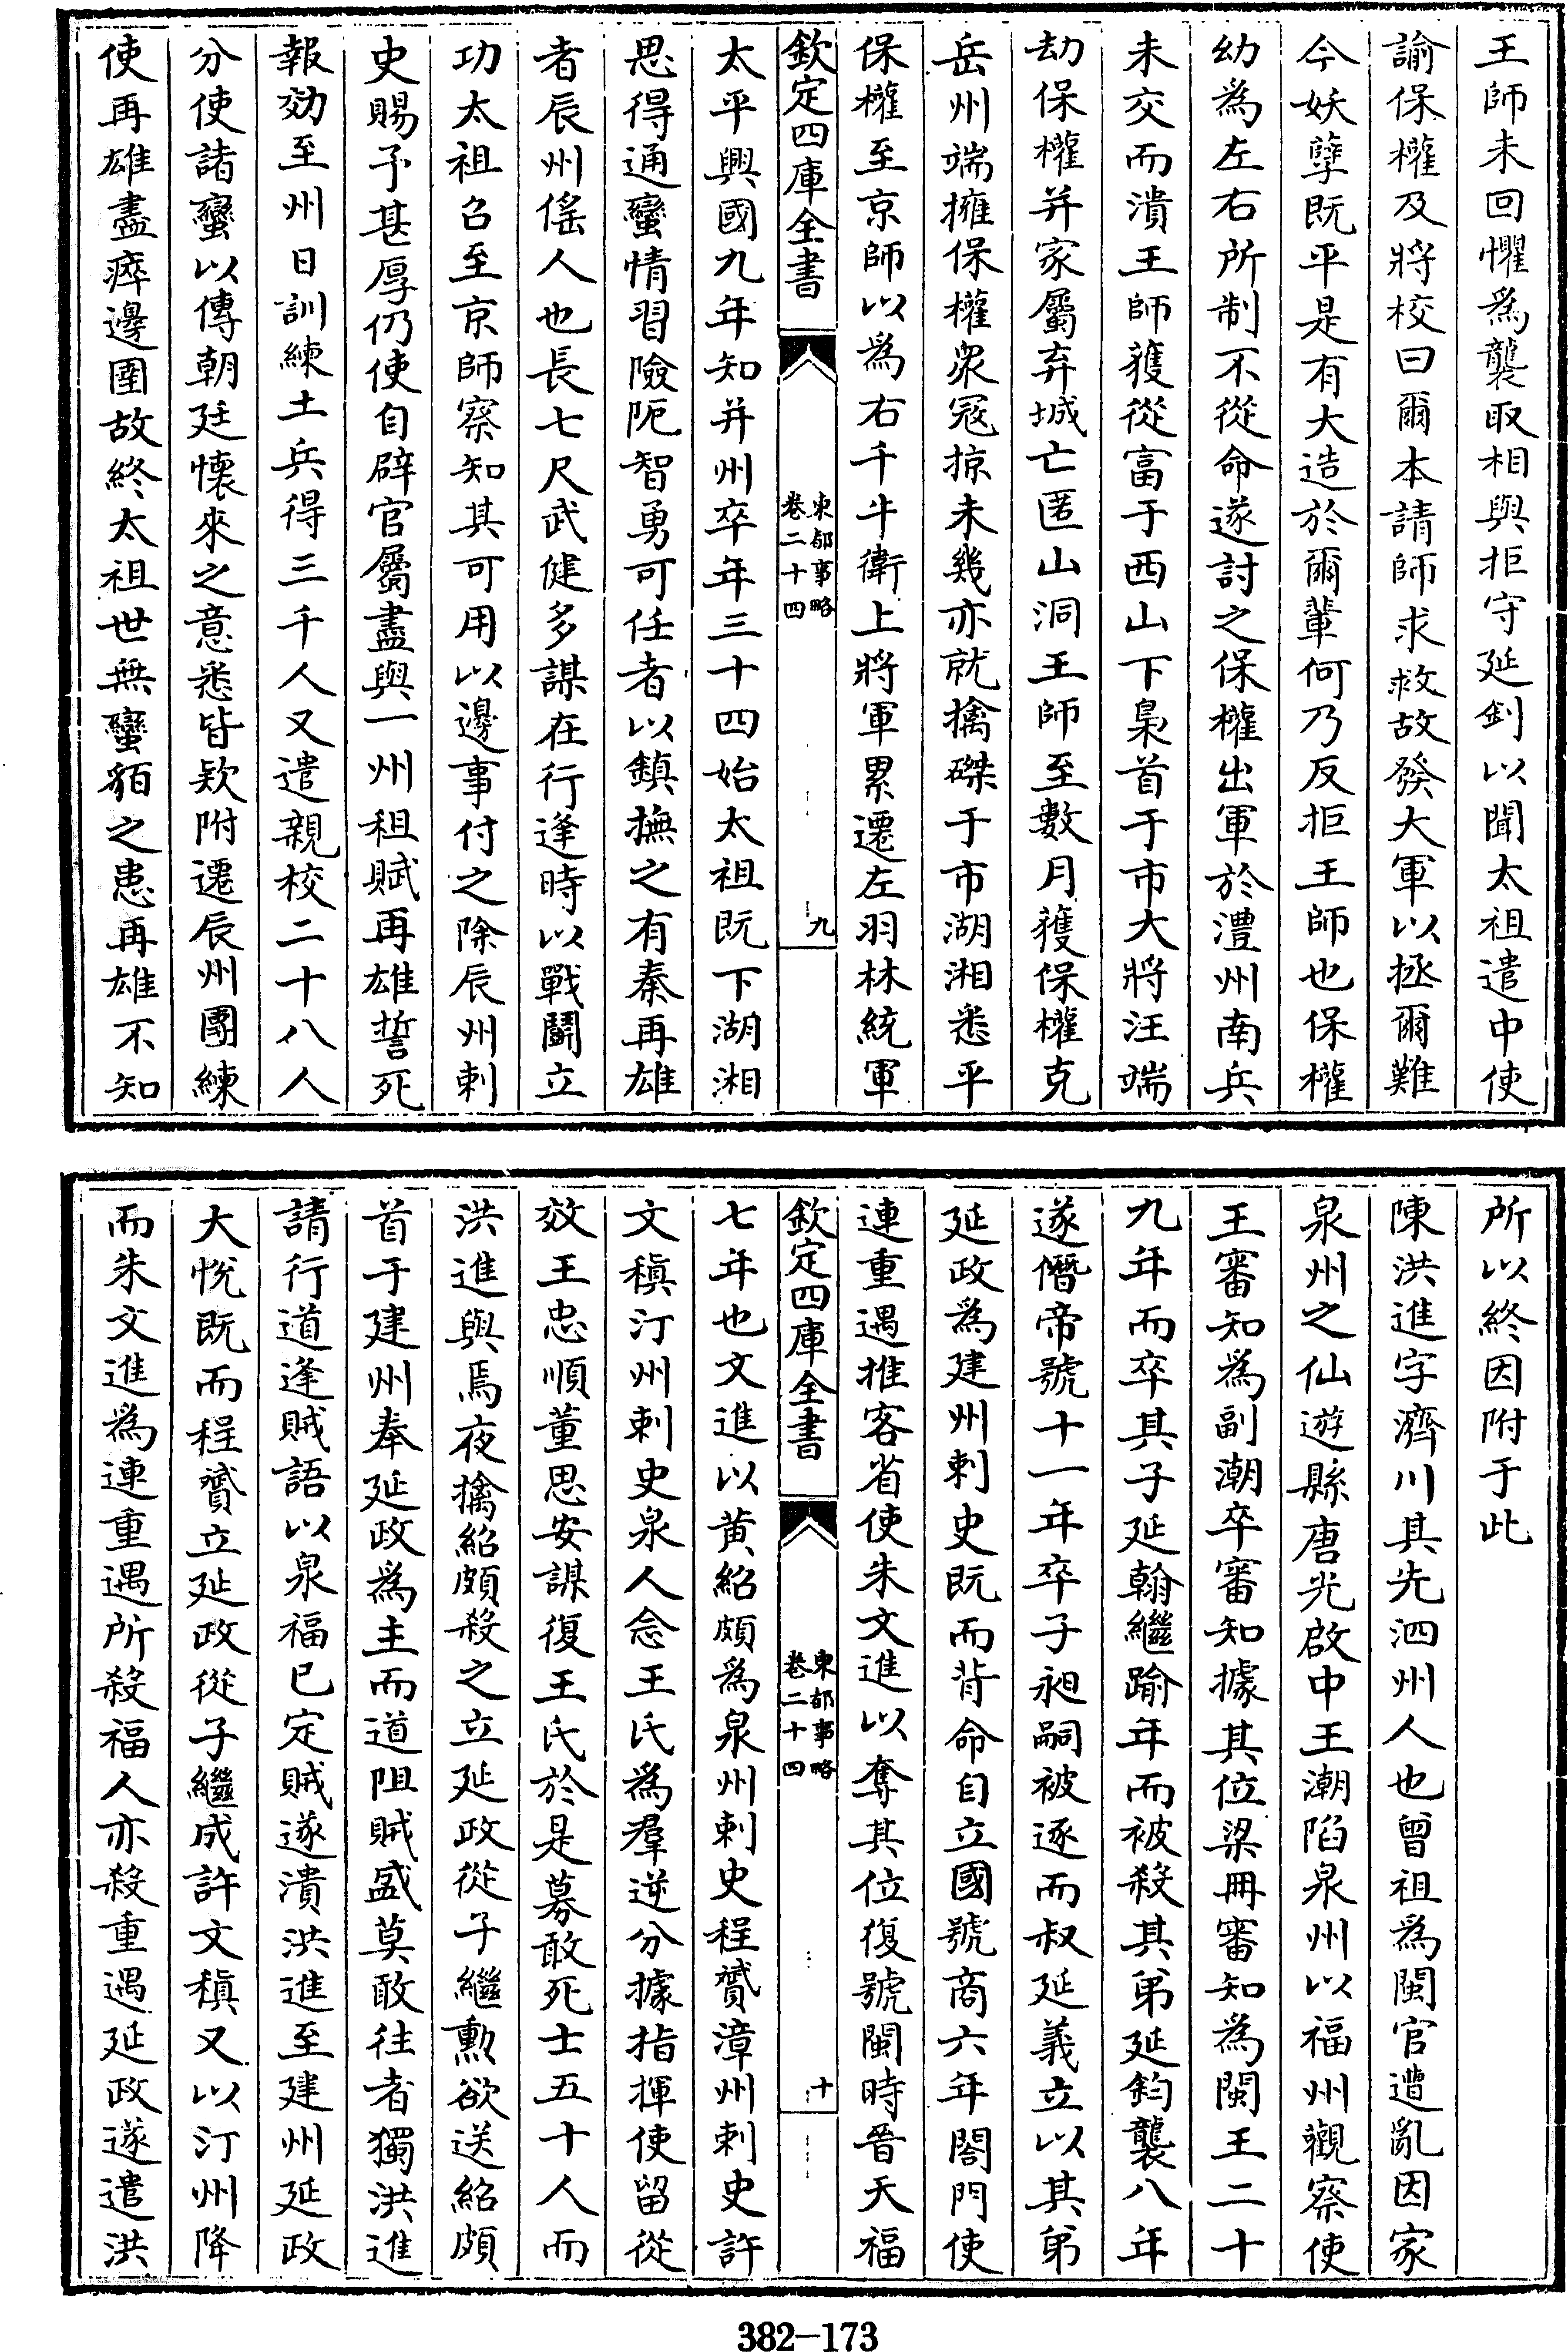 王師未回懼爲襲取相與拒守延釗以聞太祖遣中使
諭保權及將校曰爾本請師求救故發大軍以拯爾難
今妖孽既平是有大造於爾輩何乃反拒王師也保權
幼為左右所制不從命遂討之保權出軍於澧州南兵
未交而潰王師獲從富于西山下梟首于市大將汪端
劫保權并家屬弃城亡匿山洞王師至數月獲保權克
岳州端擁保權衆冦掠未幾亦就擒磔于市湖湘悉平
保權至京師以爲右千牛衛上將軍累遷左羽林統軍
欽定四庫全書
東都事略
卷二十四
九
太平興國九年知并州卒年三十四始太祖既下湖湘
思得通蠻情習險阨智勇可任者以鎮撫之有秦再雄
者辰州傜人也長七尺武健多謀在行逢時以戰鬭立
功太祖召至京師察知其可用以邊事付之除辰州刺
史賜予甚厚仍使自辟官屬盡與一州租賦再雄誓死
報効至州日訓練土兵得三千人又遣親校二十八人
分使諸蠻以傳朝廷懷來之意悉皆欵附遷辰州團練
使再雄盡瘁邊圉故終太祖世無蠻貊之患再雄不知
所以終因附于此
陳洪進字濟川其先泗州人也曾祖為閩官遭亂因家
泉州之仙遊縣唐光啟中王潮陷泉州以福州觀察使
王審知為副潮卒審知據其位梁冊審知為閩王二十
九年而卒其子延翰繼踰年而被殺其弟延鈞襲八年
遂僭帝號十一年卒子昶嗣被逐而叔延義立以其弟
延政為建州刺史既而背命自立國號商六年閤門使
連重遇推客省使朱文進以奪其位復號閩時晉天福
欽定四庫全書
東都事略
卷二十四
十
七年也文進以黄紹頗為泉州刺史程贇漳州刺史許
文稹汀州刺史泉人念王氏為羣逆分據指揮使留從
效王忠順董思安謀復王氏於是募敢死士五十人而
洪進與焉夜擒紹頗殺之立延政從子繼勲欲送紹頗
首于建州奉延政為主而道阻賊盛莫敢往者獨洪進
請行道逢賊語以泉福已定賊遂潰洪進至建州延政
大悅既而程贇立延政從子繼成許文稹又以汀州降
而朱文進為連重遇所殺福人亦殺重遇延政遂遣洪
382-173